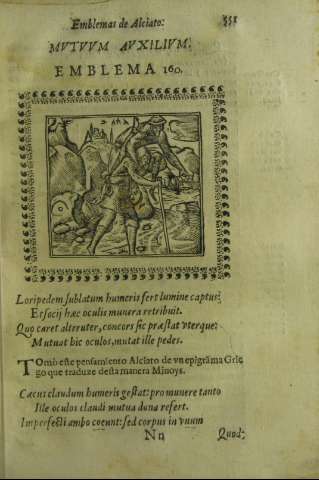 Emblemas de Alciato: 551
MVTVVM AVXILIVM.
EMBLEMA 160.
Loripedem sublatum humeris fert lumine captus:
Et socij hæc oculis munera retribuit.
Quo caret alteruter, concors sic præstat vterque:
Mutuat hic oculos, mutat ille pedes.
TOmò este pensamiento Alciato de vn epigrãma Grie
go que traduze desta manera Minoys.
Cæcus claudum humeris gestat: pro munere tanto
Ille oculos claudi mutua dona refert.
Imperfecti ambo coeunt: sed corpus in vnum
Nn Quod: